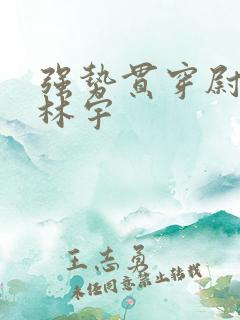 强势贯穿尉
林宇
王志勇
未经同意禁止转载